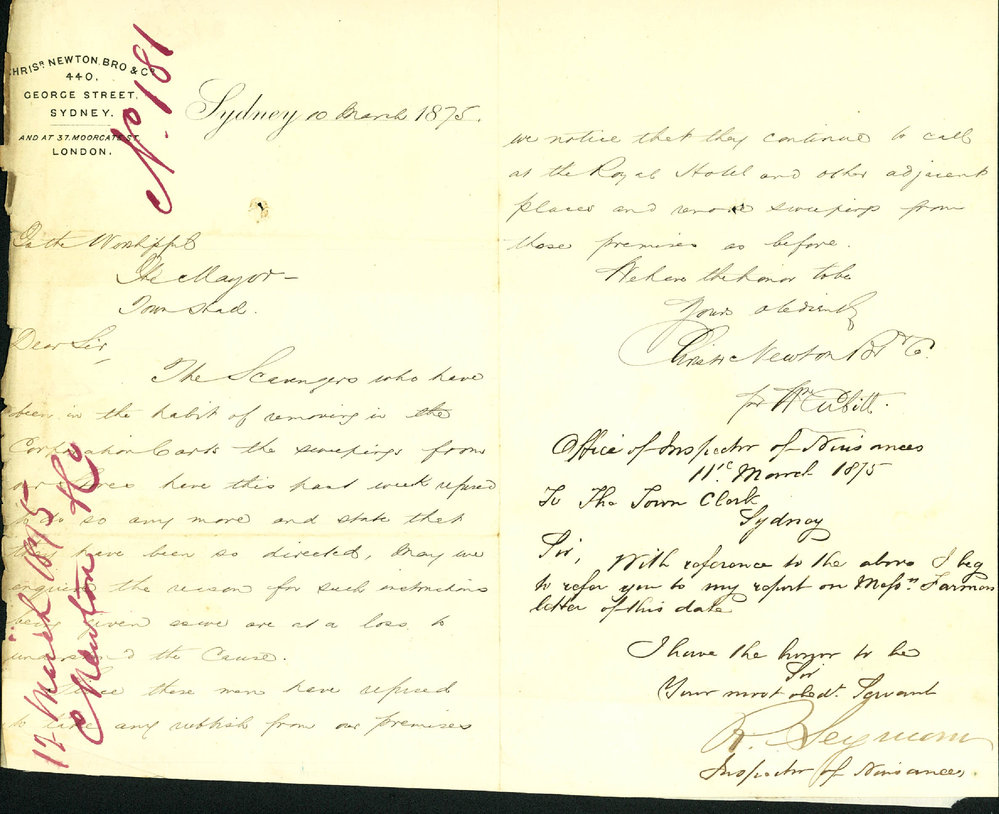 CHRISR. NEWTON, BRO & CO.
440,
GEORGE STREET,
SYDNEY.
AND AT 37. MOORGATE ST.
LONDON.
No. 181
Sydney 10 March 1875.
The Worshipful
The Mayor
Town Hall.
Dear Sir,
The Scavengers who have
been in the habit of removing in the
Corporation Carts the sweepings from
our have this past week refused
to do so any more and state that
they have been so directed, May we
inquire the reason for such instructions
being given as we are at a loss to
understand the Cause.
Since these men have refused
to take any rubbish from our premises
12 March 1875
Newton & Co
we notice that they continue to call
at the Royal Hotel and other adjacent
places and remove sweepings from
those premises as before.
We have the honor to be
Yours obediently
Chrisr Newton Bro & Co.
pr Wm Cubitt.
Office of Inspector of Nuisances
11th March 1875
To The Town Clerk
Sydney
Sir,
With reference to the above I beg
to refer you to my report on Messrs. Farmers
letter of this date
I have the honor to be
Sir
Your most obedt. Servant
R. Seymour
Inspector of Nuisances.